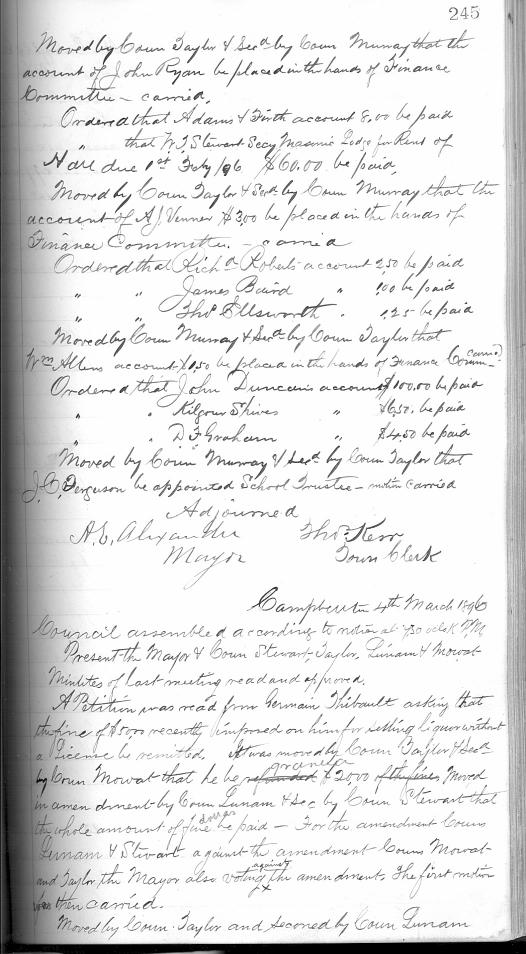 245
Moved by Coun Taylor & Secd by Coun Murray that the
account of John Ryan be placed in the hands of Finance
Committee - carried.
Ordered that Adams & Firth account 8.00 be paid
" that W.J. Stewart Secy Masonic Lodge for Rent of
Hall due 1st Feby /96 $60.00 be paid,
Moved by Coun Taylor & Secd by Coun Murray that the
account of A.J. Venner $3.00 be placed in the hands of
Finance Committee. - carried
Ordered that Richd Roberts account 2.50 be paid
" " James Baird " 1.00 be paid
" " Thos Ellsworth " 1.25 be paid
Moved by Coun Murray & Secd by Coun Taylor that
Wm Albens account $1.50 be placed in the hands of Finance Comm- carried
Ordered that John Duncan's account $100.00 be paid
" " Kilgour Shives " $6.50. be paid
" " D.F. Graham " $4.50 be paid
Moved by Coun Murray & Secd by Coun Taylor that
J.C. Ferguson be appointed School Trustee - motion carried
Adjourned
A.E. Alexander Thos Kerr
Mayor Town Clerk
Campbellton 4th March 1896
Council assembled according to notice at 7.30 oclock P.M.
Present the Mayor & Coun Stewart, Taylor, Lunam & Mowat
Minutes of last meeting read and approved.
A Petition was read from Germain Thibault asking that
the fine of $50.00 recently imposed on him for selling liquor without
a License be remitted. It was moved by Coun Taylor & Secd
by Coun Mowat that he be refunded granted $20.00 of the fine. Moved
in amendment by Coun Lunam & Sec by Coun Stewart that
the whole amount of fine be paid - For the amendment Couns
Lunam & Stewart against the amendment Couns Mowat
and Taylor, the Mayor also voting against the amendment. The first motion
was then carried.
Moved by Coun. Taylor and seconed by Coun Lunam